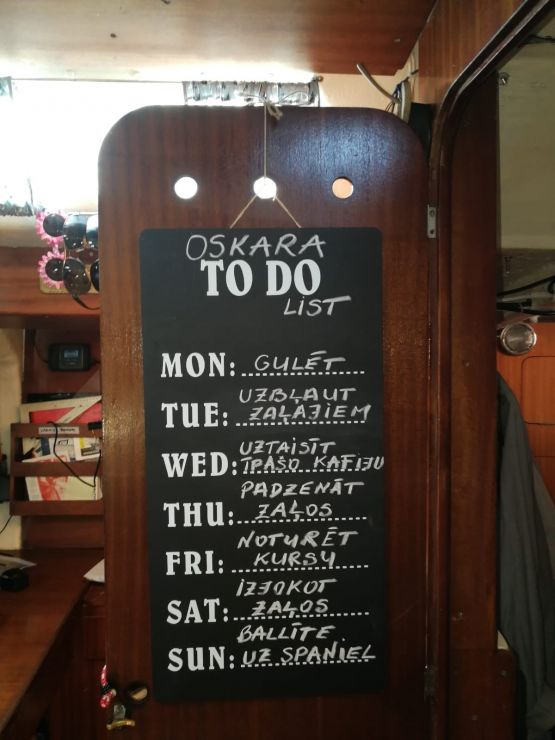 OSKARA
TO DO
LIST
MON: GULĒT
UZBĻAUT
TUE: ZAĻAJIEM
UZTAISĪT
WED: ĪPAŠO KAFIJU
PADZENĀT
THU: ZAĻOS
NOTURĒT
FRI: KURSU
IZJOKOT
SAT: ZAĻOS
BALLĪTE
SUN: UZ SPANIEL